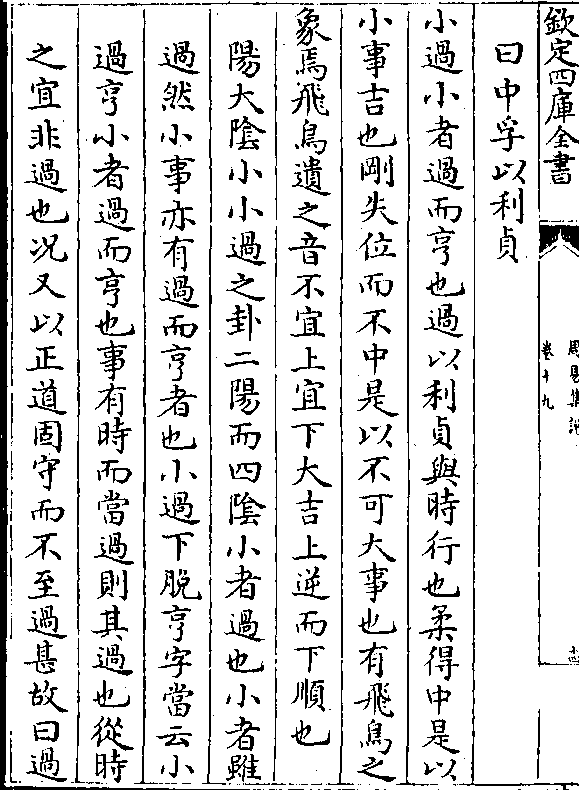 欽定四庫全書
周易集說
卷十九
曰中孚以利貞
小過小者過而亨也過以利貞與時行也柔得中是以
小事吉也剛失位而不中是以不可大事也有飛鳥之
象焉飛鳥遺之音不宜上宜下大吉上逆而下順也
陽大陰小小過之卦二陽而四陰小者過也小者雖
過然小事亦有過而亨者也小過下脫亨字當云小
過亨小者過而亨也事有時而當過則其過也從時
之宜非過也况又以正道固守而不至過甚故曰過